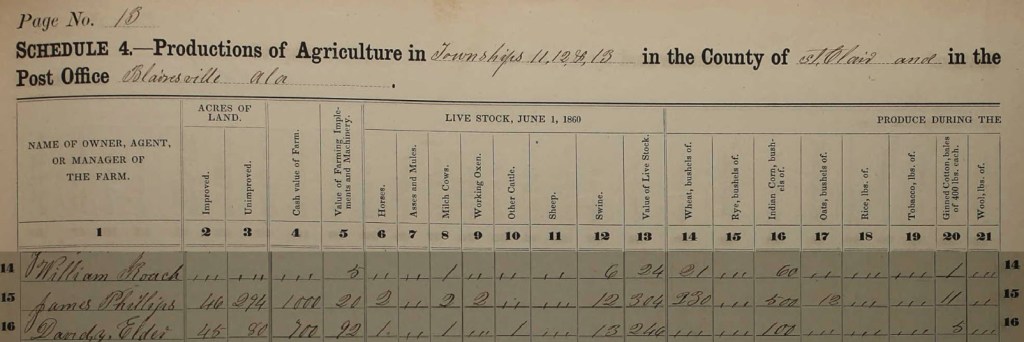 Page No. 13
SCHEDULE 4.—Productions of Agriculture in Townships 11, 12 &, 13 in the County of St. Clair and in the
Post Office Blainesville Ala.
NAME OF OWNER, AGENT, OR MANAGER OF THE FARM.
ACRES OF LAND.
LIVE STOCK, JUNE 1, 1860
PRODUCE DURING THE
Improved. Unimproved. Cash value of Farm. Value of Farming Implements and Machinery. Horses. Asses and Mules. Milch Cows. Working Oxen. Other Cattle. Sheep. Swine. Value of Live Stock. Wheat, bushels of. Rye, bushels of. Indian Corn, bushels of. Oats, bushels of. Rice, lbs. of. Tobacco, lbs. of. Ginned Cotton, bales of 400 lbs. each. Wool, lbs. of.
1 2 3 4 5 6 7 8 9 10 11 12 13 14 15 16 17 18 19 20 21
14 William Roach " " " 5 " " 1 " " " 6 24 21 " 60 " " " 1 " 14
15 James Phillips 46 294 1000 20 2 " 2 2 " " 12 304 230 " 500 12 " " 11 " 15
16 David, y, Elder 45 80 700 92 1 " 1 " 1 " 13 246 " " 100 " " " 5 " 16